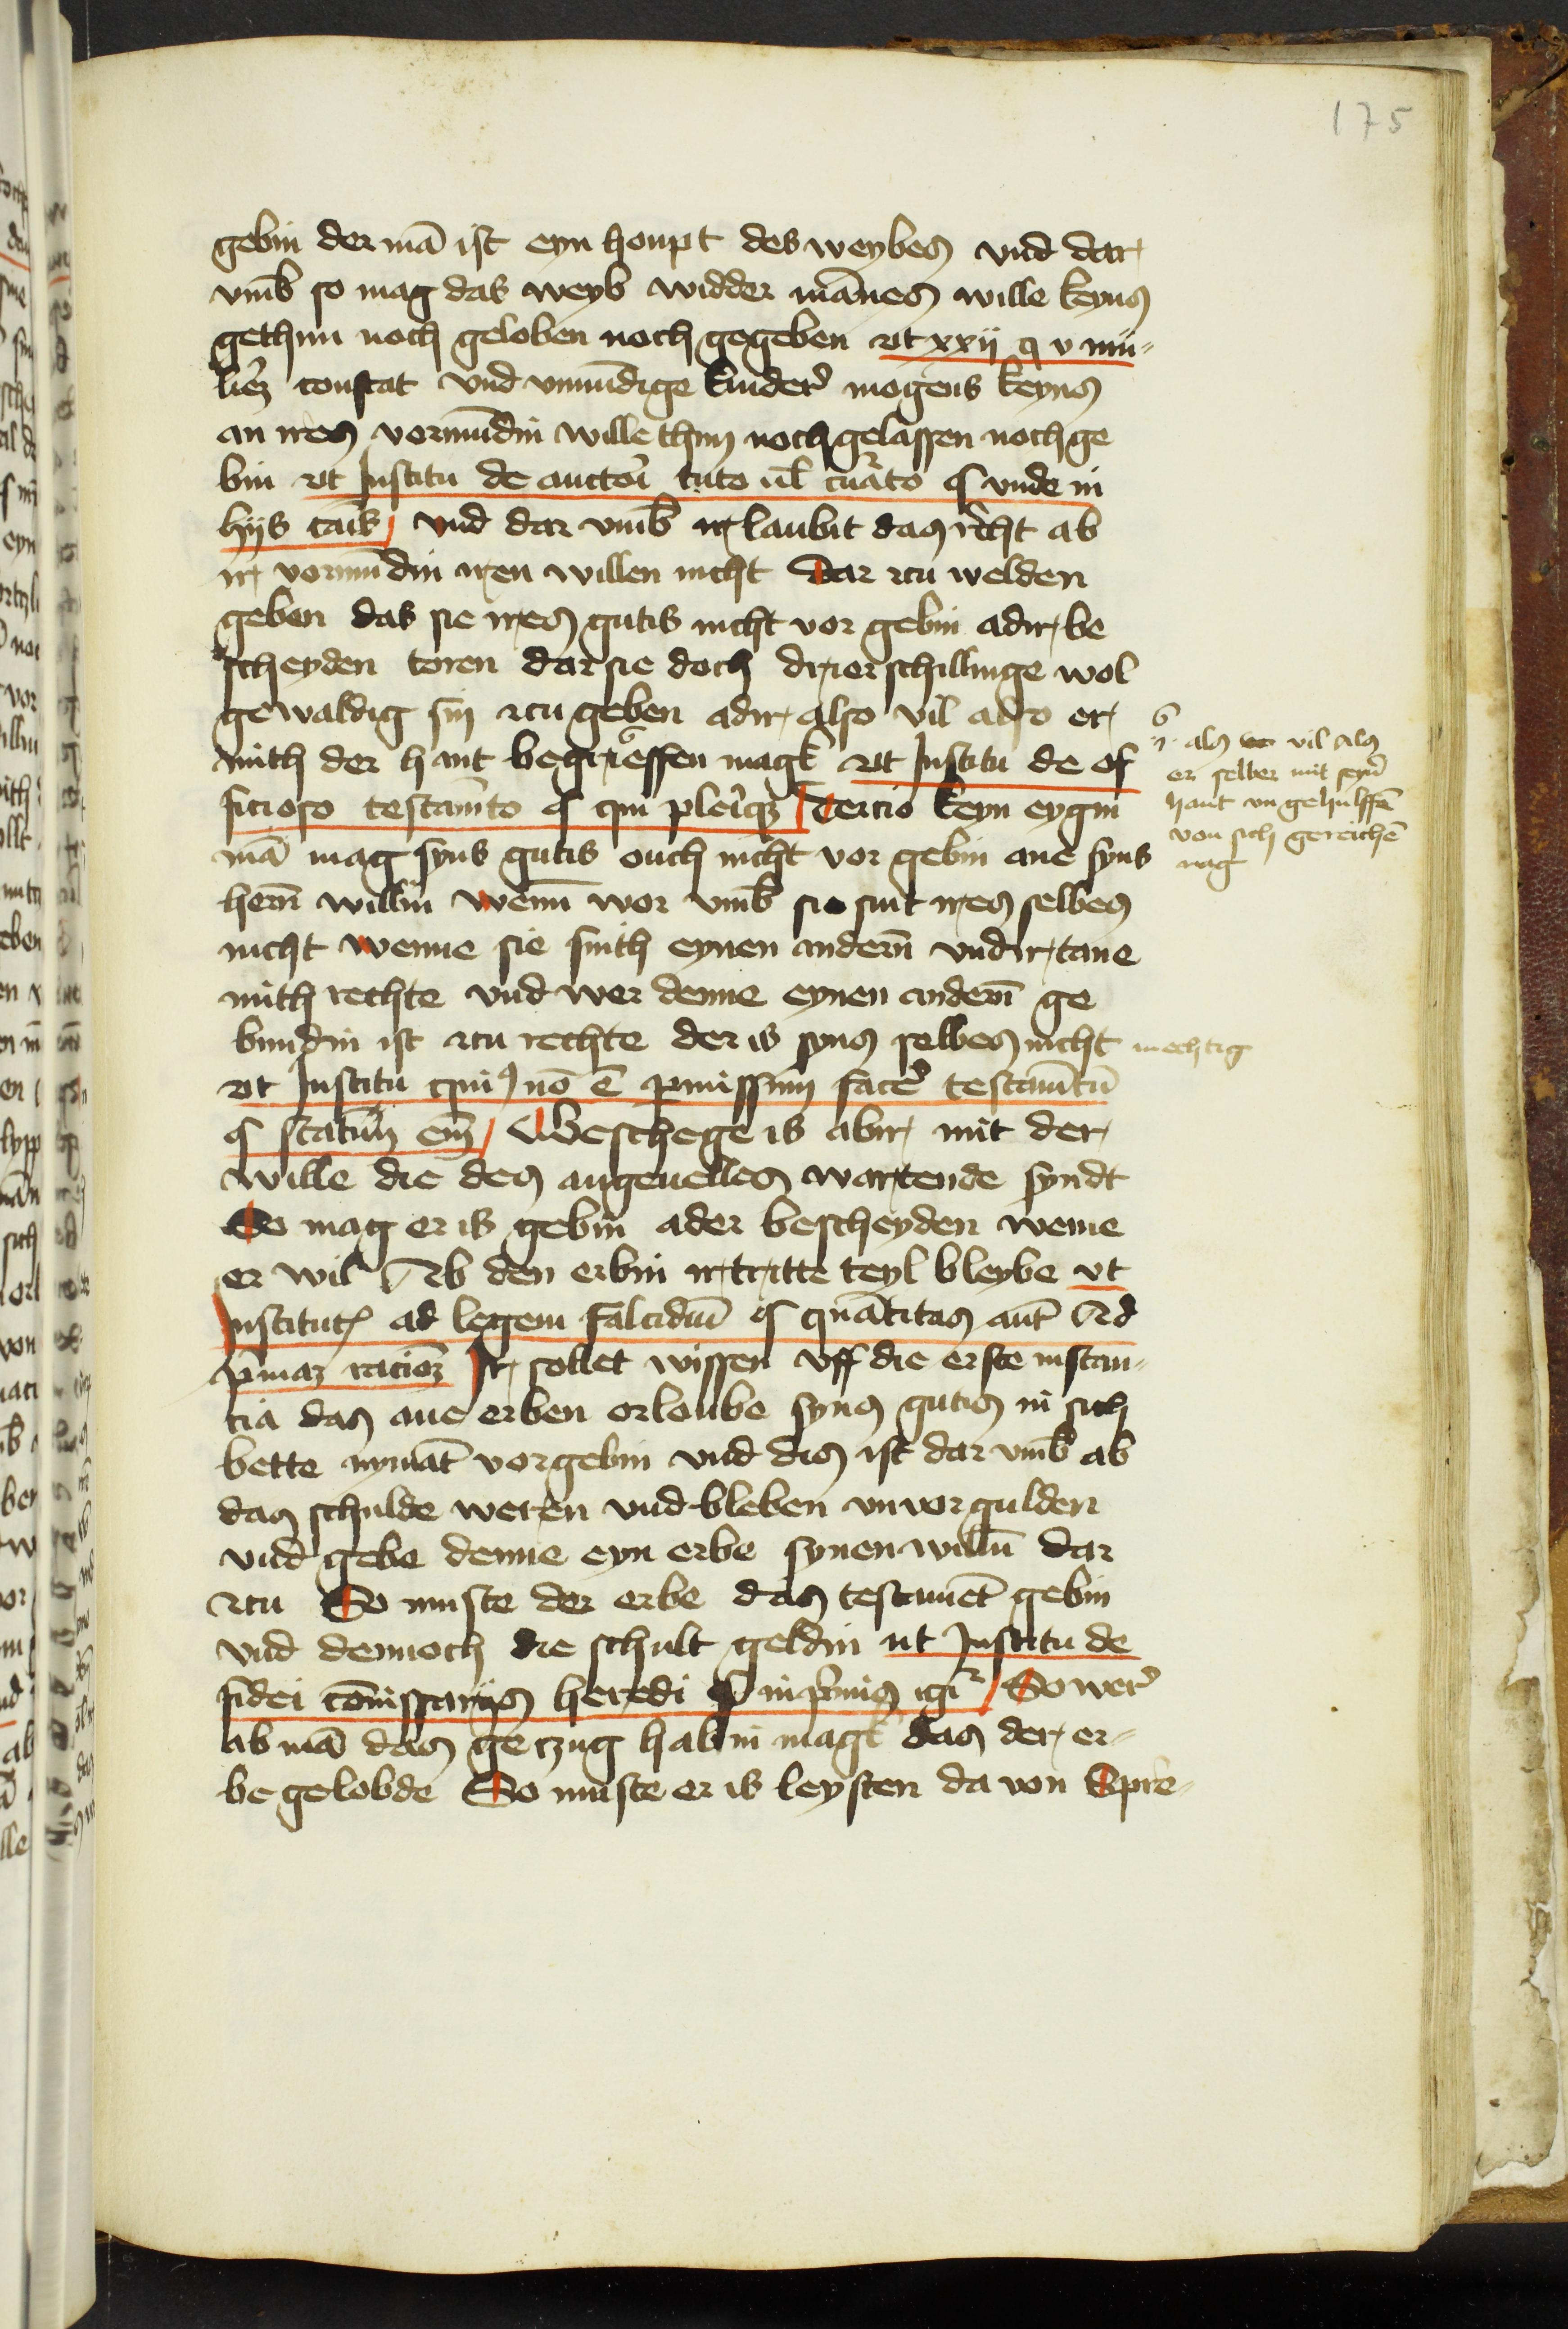 175
gebin der mā ist eyn houpt des weybes vnd dar
vmb so mag das weyb widder mānes wille keyns
gethun noch geloben noch gegeben vt xxxij q v mu-
lieꝝ constat vnd vnmūdige kinder mogens keyns
an ires vormūdin wille thun noch gelassen noch ge
bin vt Institu de auctori tuto ul curato § vnde in
hijs caus vnd dar vmb ir laubit das recht ab
ir vormūdin iren willen nicht Dar czu welden
geben das sie ires gutis nicht vor gebin adir be
scheyden toren dar sie doch drier schillinge wol
gewaldig sin czu geben adir also vil also er
mith der hant begrieffen magk vt Institu de of
ficioso testamēto § qui pleriqꝫ Tercio keyn eygin
mā mag syns gutis ouch nicht vor gebin ane syns
herrn willin wenn wor vmb sie sint ires selbes
nicht wenne sie sinth eynen andern vndirtane
mith rechte vnd wer denne eynen andern ge
bundin ist czu rechte der is syns selbes nicht mechtig
vt Institu quibꝰ nō ē permissum facere testamētū
§ statim eni Geschege is abir mit der
wille die des angeuelles wartende syndt
So mag er is gebin ader bescheyden weme
er wil Ab den erbin ir tritte teyl bleybe vt
Institut ad legem falcidiā § quātitas autē Ad
primaꝫ racioꝫ Ir sollet wissen vff die erste instan-
cia das ane erben orloube syns gutis in sich
bette nymāt vorgebin vnd dis ist dar vmb ab
das schulde weren vnd bleben vnvorgulden
vnd gebe denne eyn erbe synen willū dar
czu So muste der erbe das testamēt gebin
vnd dennoch die schult geldin ut Institu de
fidei cōmissarijs heredi § inprimis igir So wer
ab mā das geczug habin magk das der er-
be gelobde So muste er is leysten da von Spre-
als vil als
er selber mit seyner
hant vngehulffē
von sich gereichē
mag